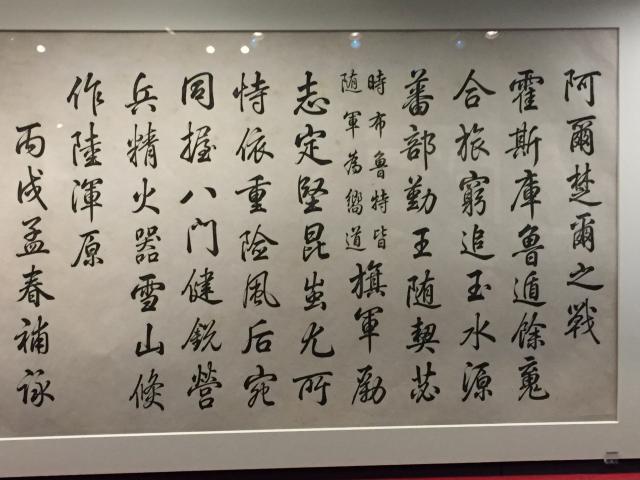 阿爾楚爾之戰
霍斯庫魯遁餘䰟
合旅窮追玉水源
蕃部勤王随契苾
時布魯特皆
随軍為嚮道
旗軍勵
志定堅昆蚩尤所
恃依重險風后宛
同握八門健銳營
兵精火器雪山倏
作陸渾原
丙戌孟春補詠